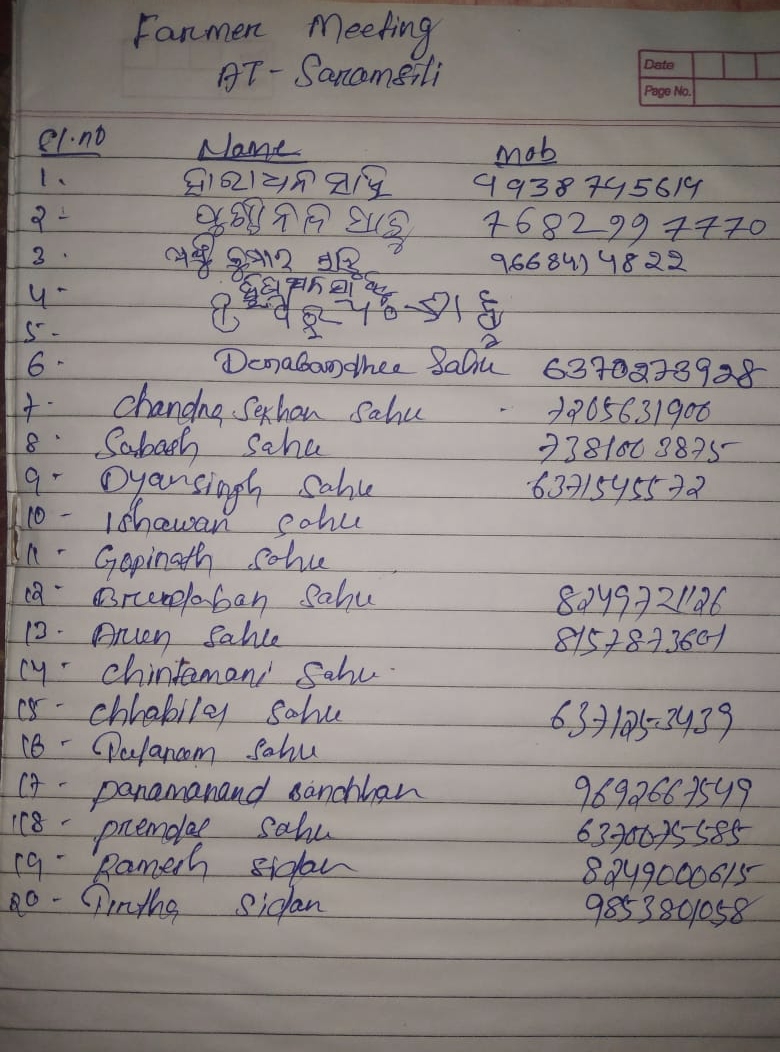 Farmer Meeting
AT - Saramsili
Date
Page No.
Sl.no Name Mob
1. ସାହୁ 9938745614
2- ସାହୁ 7682997770
3. କୁମାର ସାହୁ 9668414822
4-
5-
6- Denabandhee Sahu 6370273928
7- Chandra Sekhar Sahu - 7205631900
8- Sabash Sahu 7381003875
9- Dyansingh Sahu 6371545572
10- Ishawar Sahu
11- Gopinath Sahu
12- Brundaban Sahu 8249721126
13- Arun Sahu 8157873601
14- Chintamani Sahu
15- Chhabilal Sahu 6371253439
16- Sahu
17- paramanand bandhhan 9692667549
18- premlal Sahu 6370075585
19- Ramesh Sidar 8249000615
20- Tirtha Sidar 9853801058